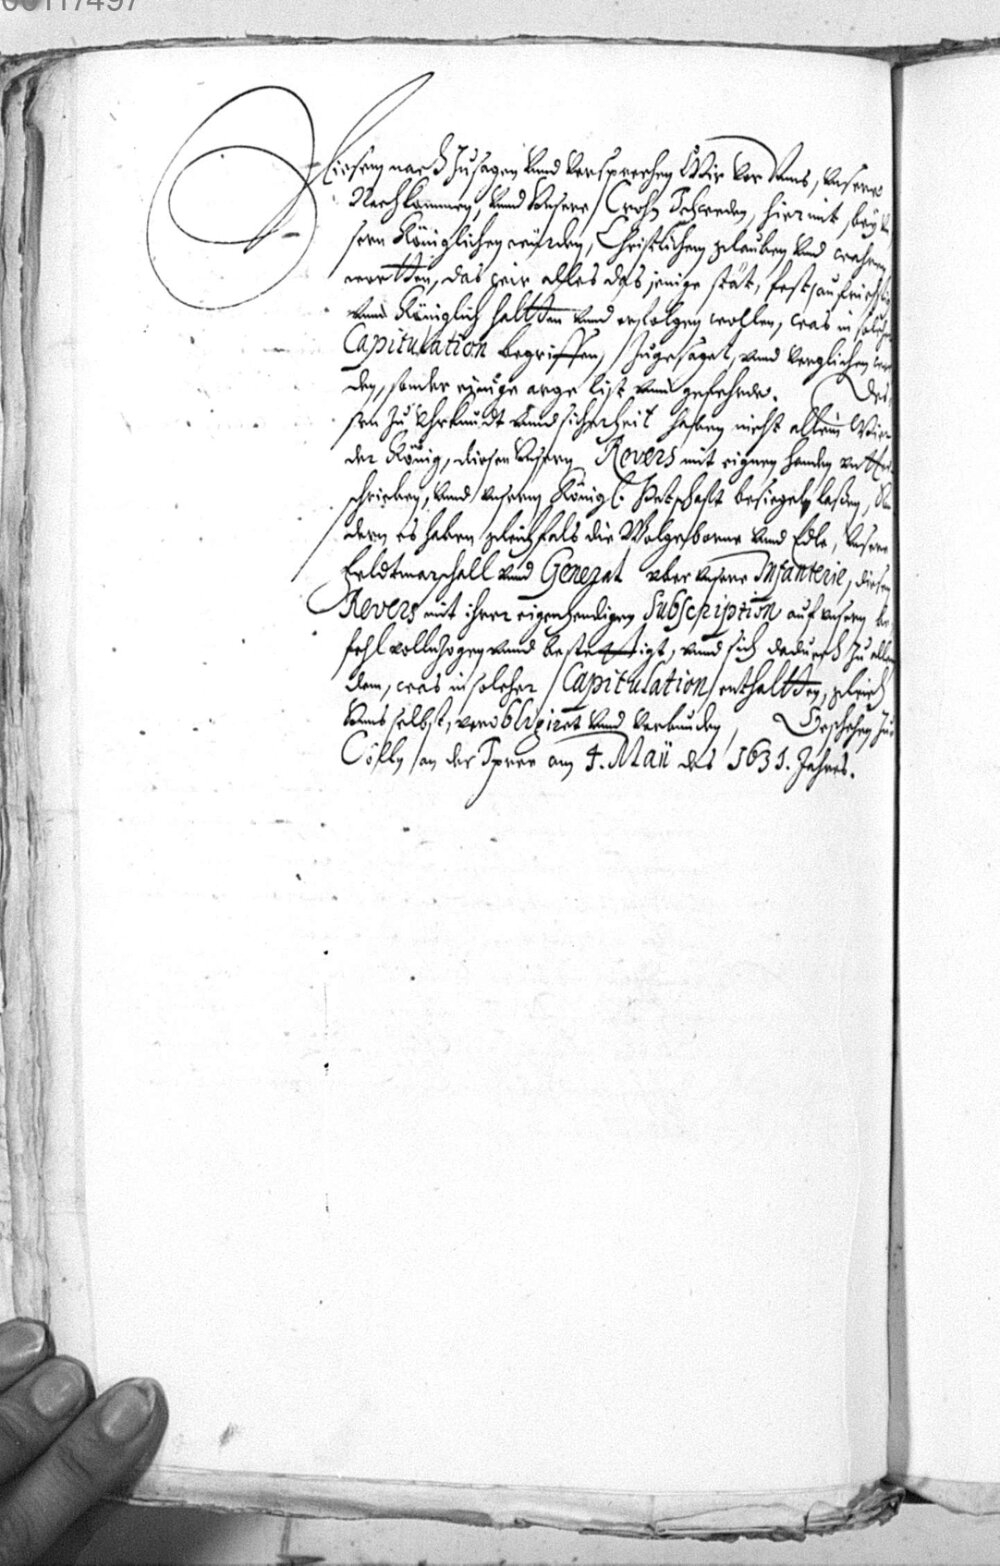 00117497
Diesem nach Zusagen vnnd versprechen Wir vor Vnns, Vnsere
Nachkommen, vnnd Vnsere Crohn Schweden, hiermit, bey Vn
sern Königlichen würden, Christlichem glauben vnd wahren
wortten, das wir alles das jenige stät, fest, aufrichtig
vnnd Königlich haltten vnnd erfolgen wollen, was in solcher
Capitulation begriffen, Zugesaget, vnnd verglichen wor
den, sonder einige arge list vnnd gefehrde. Des
sen Zu Vhrkundt vnnd sicherheit haben nicht allein Wier
der König, diesen Vnsern Revers mit eignen handen vntter
schrieben, vnnd vnserm Königl. Petschafft besiegeln laßen, Son
dern es haben gleichfals die Wolgeborne vnnd Edle, Vnsere
Feldtmarschall vnnd General vber vnsere Infanterie, diesen
Revers mit ihrer eigenhendigen Subscription auf vnsern be
fehl vollnzogen vnnd bestettigt, vnnd sich dadurch zu allem
dem, was in solcher Capitulation enthaltten, gleich
Vnns selbst, verobligiret vnnd verbunden, Geschehen Zu
Cölln an der Spree am 4. Maii des 1631. Jahres.